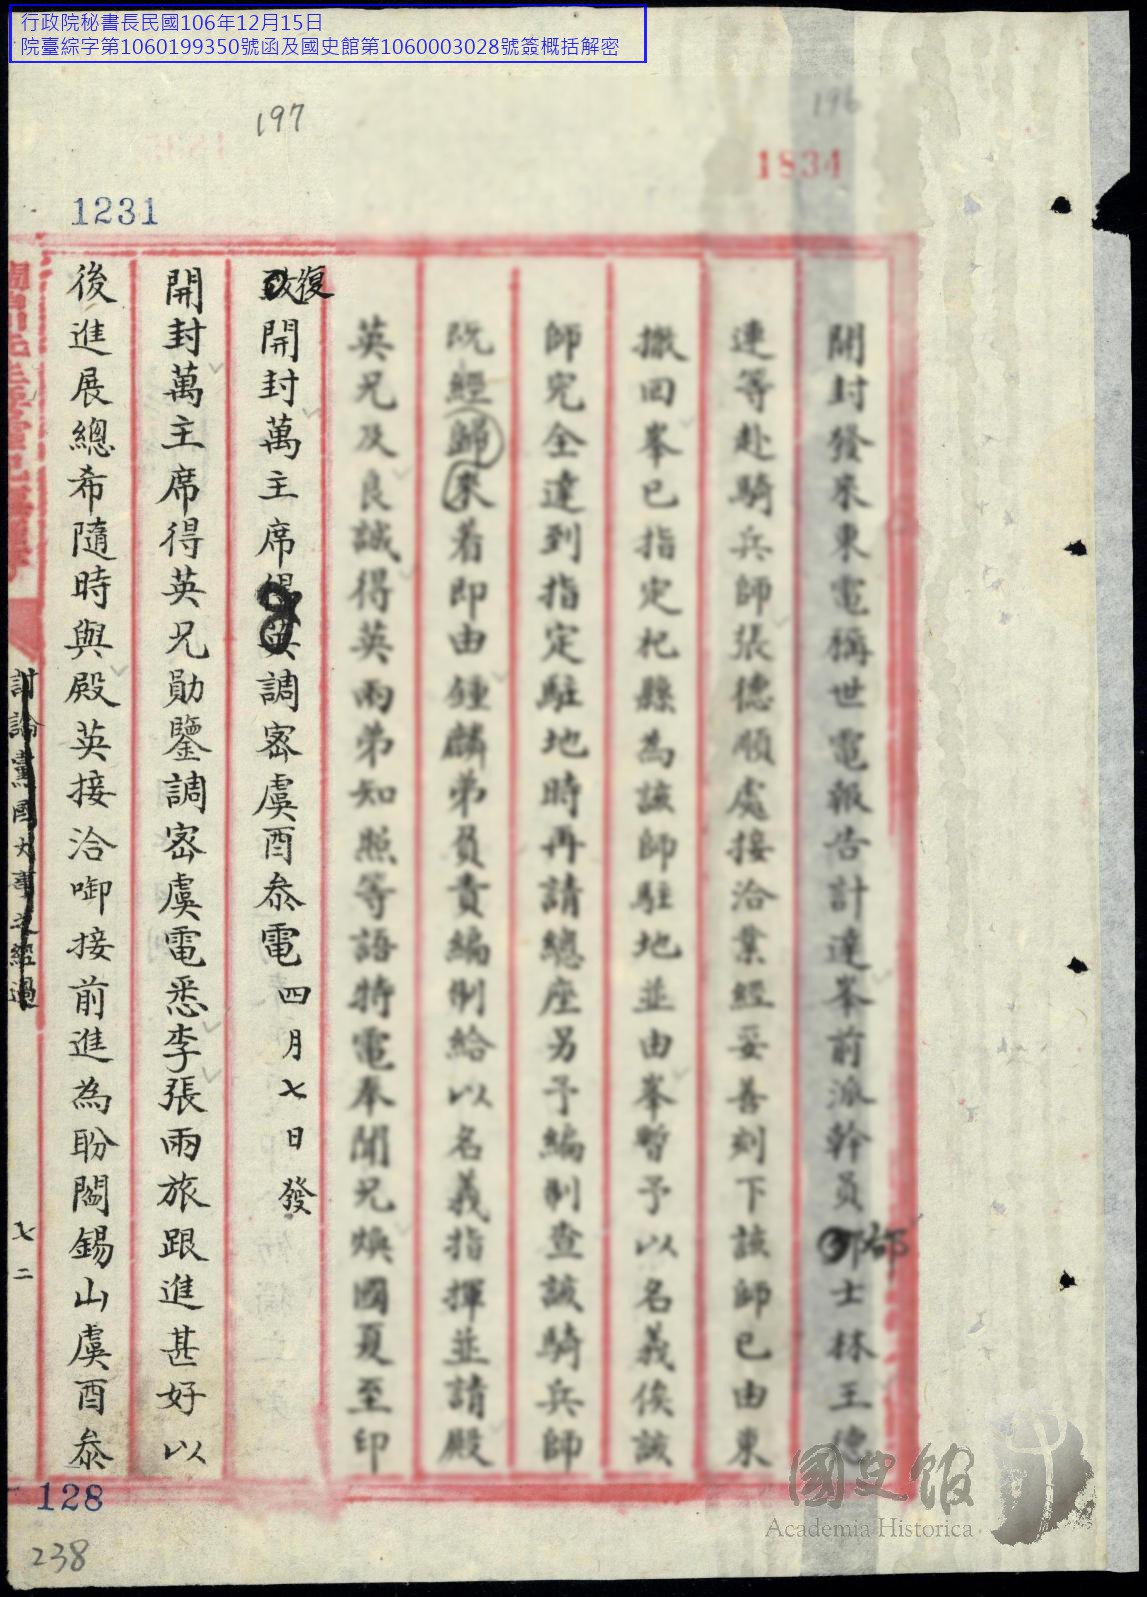 行政院秘書長民國106年12月15日
院臺綜字第1060199350號函及國史館第1060003028號簽概括解密
197
196
1834
1231
開封發來東電稱世電報告計達峯前派幹員邵士林王德
連等赴騎兵師張德順處接洽業經妥善刻下該師已由東
撤回峯已指定杞縣為該師駐地並由峯暫予以名義俟該
師完全達到指定駐地時再請總座另予編制查該騎兵師
既經歸來着即由鍾麟弟負責編制給以名義指揮並請殿
英兄及良誠得英兩弟知照等語特電奉聞兄煥國夏至印
復開封萬主席調密虞酉叅電四月七日發
開封萬主席得英兄勛鑒調密虞電悉李張兩旅跟進甚好以
後進展總希隨時與殿英接洽啣接前進為盼閻錫山虞酉叅
討論黨國大事之經過
七二
128
238
國史館
Academia Historica